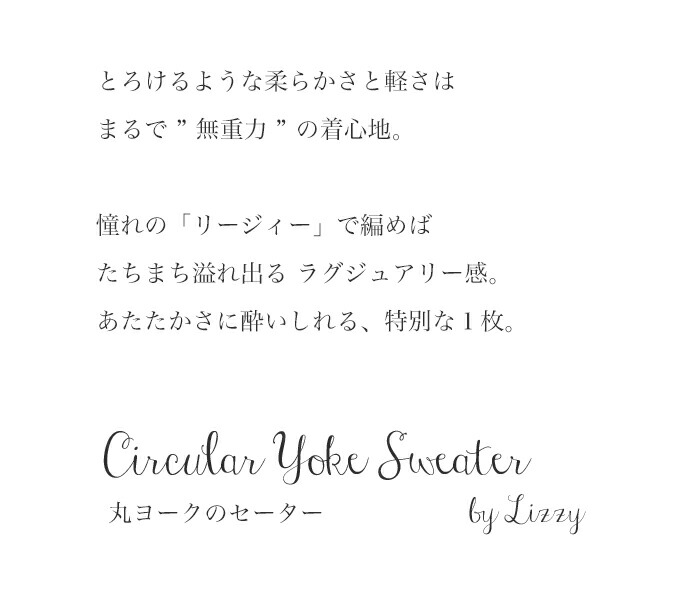 とろけるような柔らかさと軽さは
まるで ” 無重力 ” の着心地。
憧れの「リージィー」で編めば
たちまち溢れ出る ラグジュアリー感。
あたたかさに酔いしれる、特別な 1 枚。
Circular Yoke Sweater
丸ヨークのセーター by Lizzy